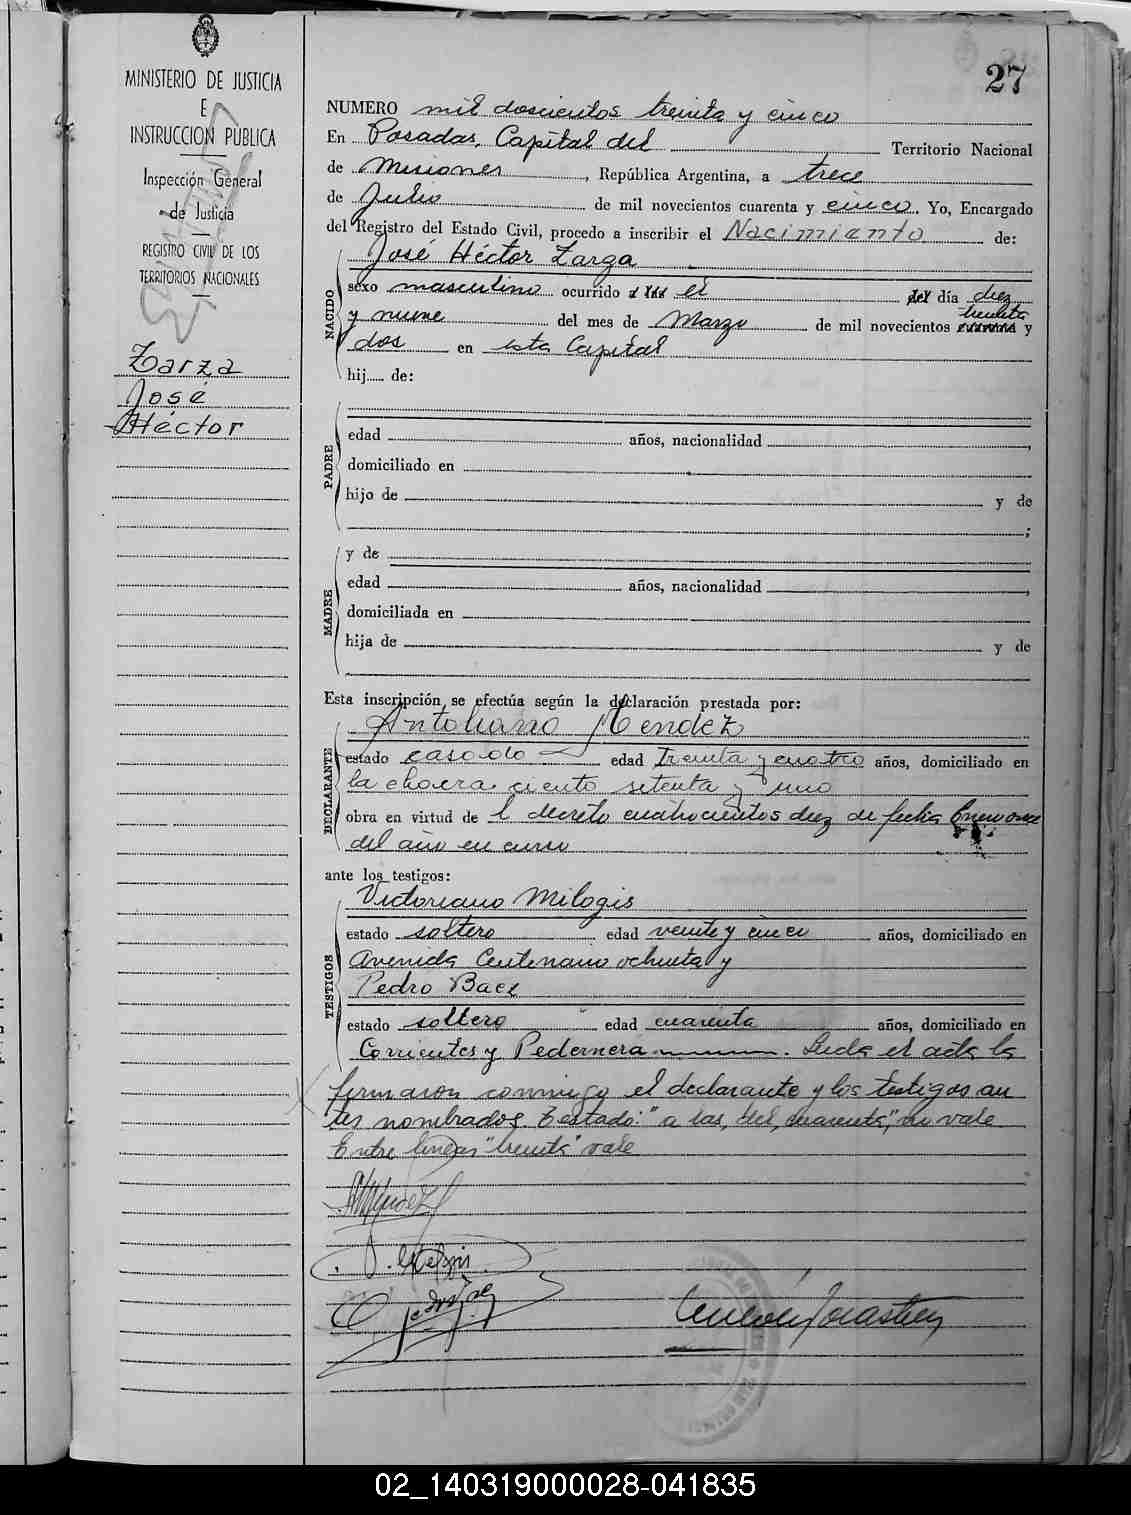 27
MINISTERIO DE JUSTICIA
E
INSTRUCCION PUBLICA
Inspección General
de Justicia
REGISTRO CIVIL DE LOS
TERRITORIOS NACIONALES
Zarza
José
Héctor
NUMERO mil doscientos treinta y cinco
En Posadas, Capital del Territorio Nacional
de Misiones, República Argentina, a trece
de Julio de mil novecientos cuarenta y cinco. Yo, Encargado
del Registro del Estado Civil, procedo a inscribir el Nacimiento de:
NACIDO
José Héctor Zarza
sexo masculino ocurrido a las el del día diez
treinta
y nueve del mes de Marzo de mil novecientos y
dos en esta Capital
hij de:
PADRE
edad años, nacionalidad
domiciliado en
hijo de y de
;
MADRE
y de
edad años, nacionalidad
domiciliada en
hija de y de
Esta inscripción se efectúa según la declaración prestada por:
DECLARANTE
Antoliano Mendez
estado casado edad treinta y cuatro años, domiciliado en
la chacra ciento setenta y uno
obra en virtud de l decreto cuatrocientos diez de fecha Enero once
del año en curso
ante los testigos:
TESTIGOS
Victoriano Milogis
estado soltero edad veinte y cinco años, domiciliado en
Avenida Centenario ochenta y
Pedro Baez
estado soltero edad cuarenta años, domiciliado en
Corrientes y Pedernera. Leida el acta la
firmaron conmigo el declarante y los testigos an
tes nombrados. Testado: "a las, del, cuarenta", no vale
Entre lineas "treinta" vale
02_140319000028-041835